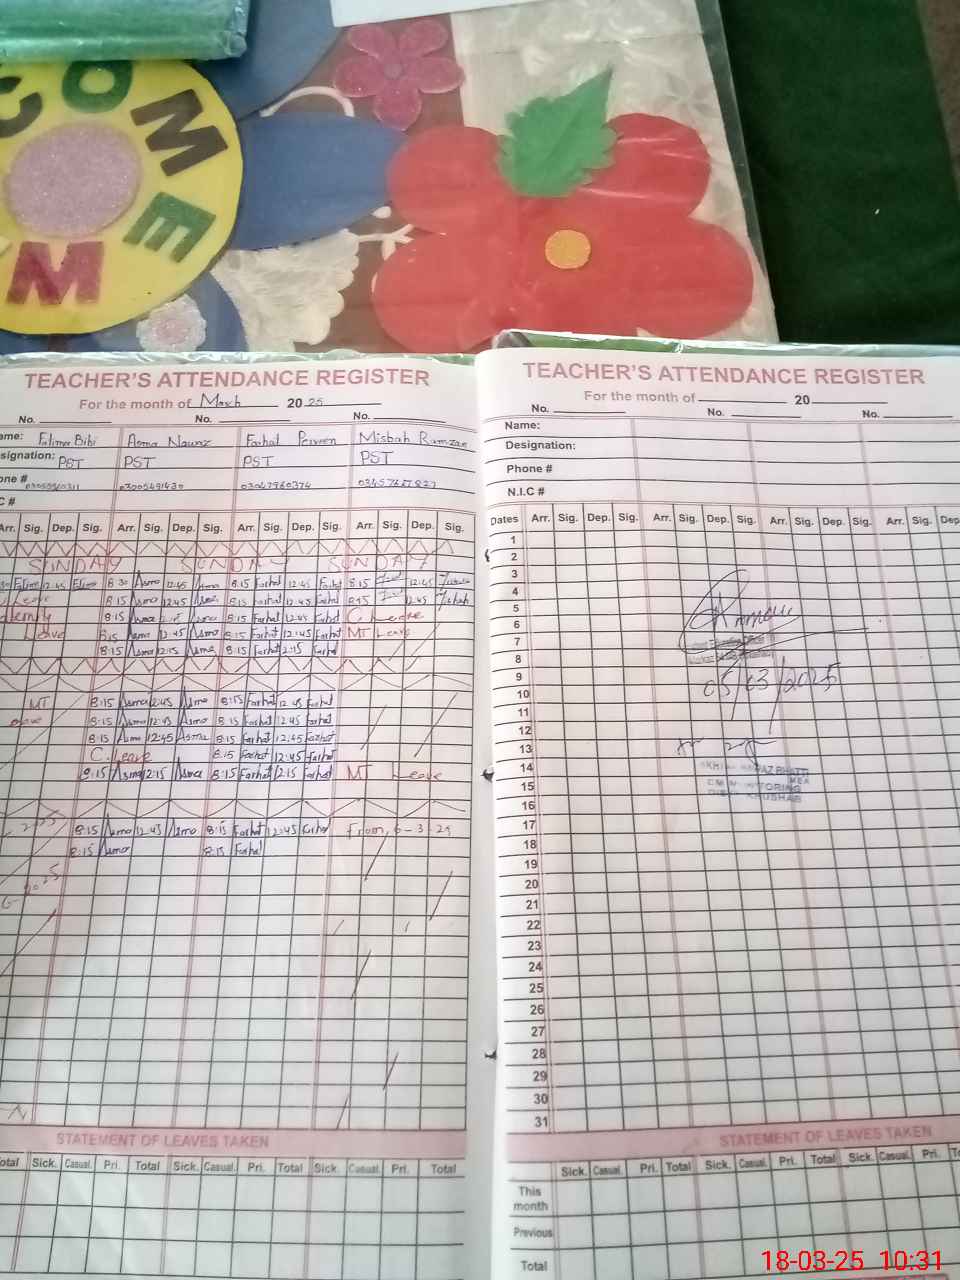 COME
M
TEACHER'S ATTENDANCE REGISTER
For the month of March 2025
No. No. No.
ame: Fatima Bibi Asma Nawaz Farhat Perveen Misbah Ramzan
signation: PST PST PST PST
one # 03005491430 03047960374
C #
Arr. Sig. Dep. Sig. Arr. Sig. Dep. Sig. Arr. Sig. Dep. Sig. Arr. Sig. Dep. Sig.
SUNDAY SUNDAY SUNDAY
12:45 8:30 Asma 12:45 Asma 8:15 Farhat 12:45 Farhat 8:15 12:45
Leave 8:15 Asma 12:45 Asma 8:15 Farhat 12:45 Farhat 8:15 12:45
8:15 Asma Asma 8:15 Farhat 12:45 Farhat C Leave
Leave 8:15 Asma 12:45 Asma 8:15 Farhat 12:45 Farhat MT Leave
8:15 Asma 12:15 Asma 8:15 Farhat 12:15 Farhat
MT 8:15 Asma 12:45 Asma 8:15 Farhat 12:45 Farhat
8:15 Asma 12:45 Asma 8:15 Farhat 12:45 Farhat
8:15 Asma 12:45 Asma 8:15 Farhat 12:45 Farhat
C. Leave 8:15 Farhat 12:45 Farhat
8:15 Asma 12:15 Asma 8:15 Farhat 12:15 Farhat MT Leave
8:15 Asma 12:45 Asma 8:15 Farhat 12:45 Farhat From
8:15 Asma 8:15 Farhat
2025
STATEMENT OF LEAVES TAKEN
otal Sick. Casual. Pri. Total Sick. Casual. Pri. Total Sick. Casual. Pri. Total
TEACHER'S ATTENDANCE REGISTER
For the month of 20
No. No. No.
Name:
Designation:
Phone #
N.I.C #
Dates Arr. Sig. Dep. Sig. Arr. Sig. Dep. Sig. Arr. Sig. Dep. Sig. Arr. Sig. Dep
1
2
3
4
5
6
7
8
9
10
11
12
13
14
15
16
17
18
19
20
21
22
23
24
25
26
27
28
29
30
31
05/03/2025
STATEMENT OF LEAVES TAKEN
Sick. Casual. Pri. Total Sick. Casual. Pri. Total Sick. Casual. Pri.
This
month
Previous
Total
18-03-25 10:31